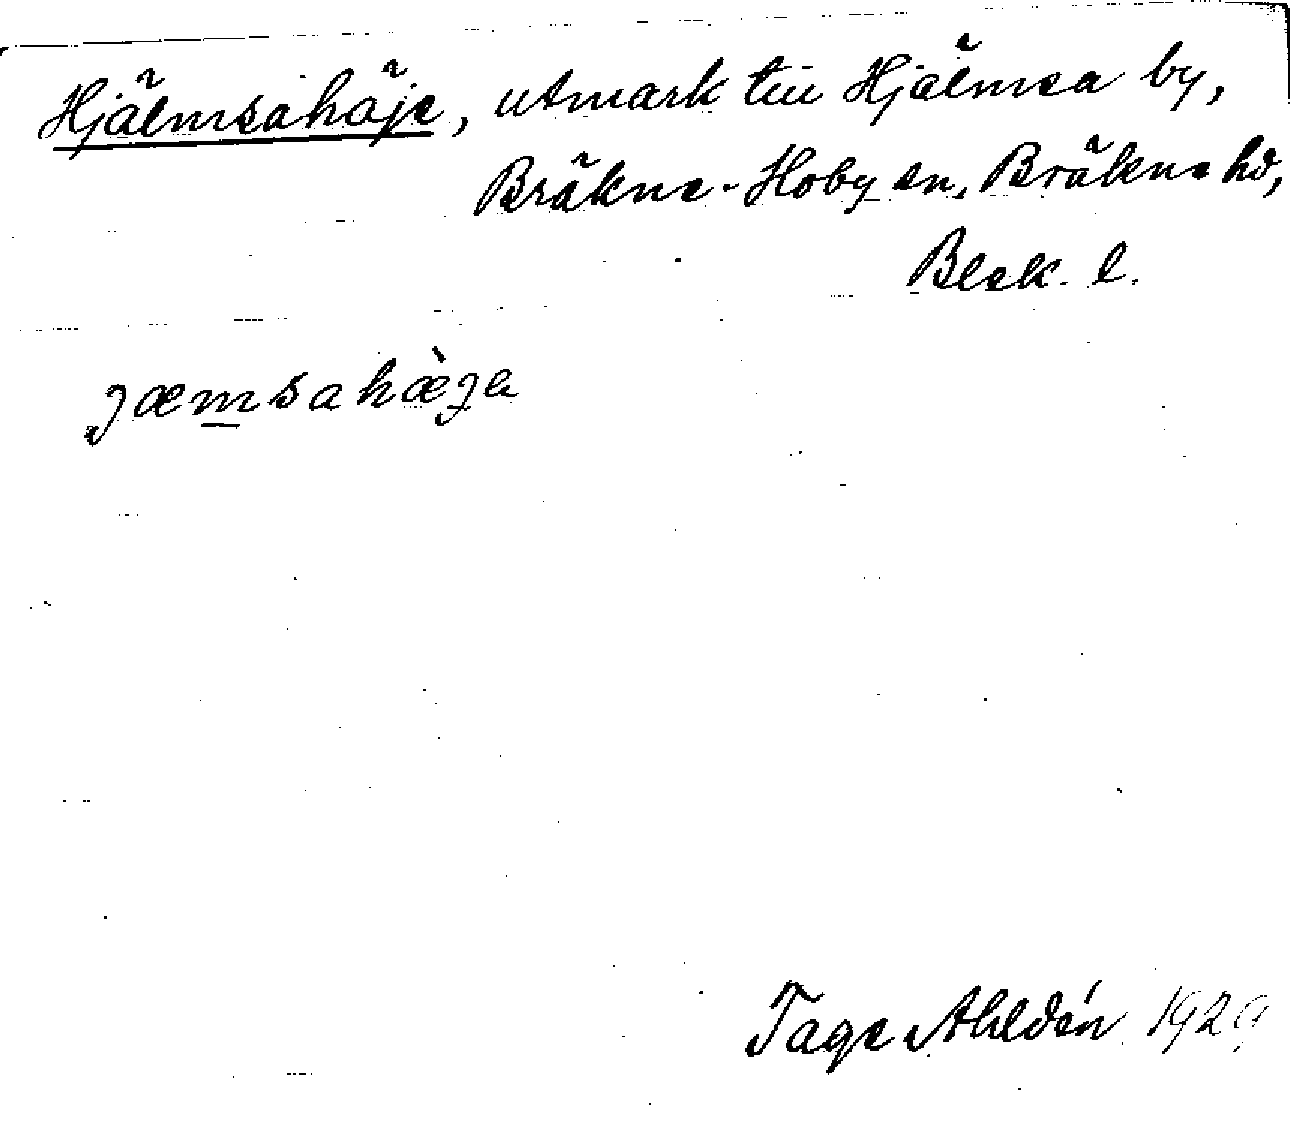 Hjälmsahäje, utmark till Hjälmsa by,
Bräkne-Hoby sn, Bräkne hd,
Blek. l.
jæmsahæ̀ja
Tage Ahldén 1929